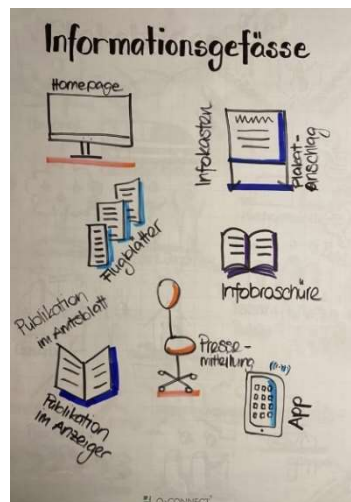 Informationsgefässe
Homepage
Infokasten
Plakat-
Anschlag
Flugblätter
Infobroschüre
Publikation
im Amtsblatt
Presse-
mitteilung
Publikation
im Anzeiger
App